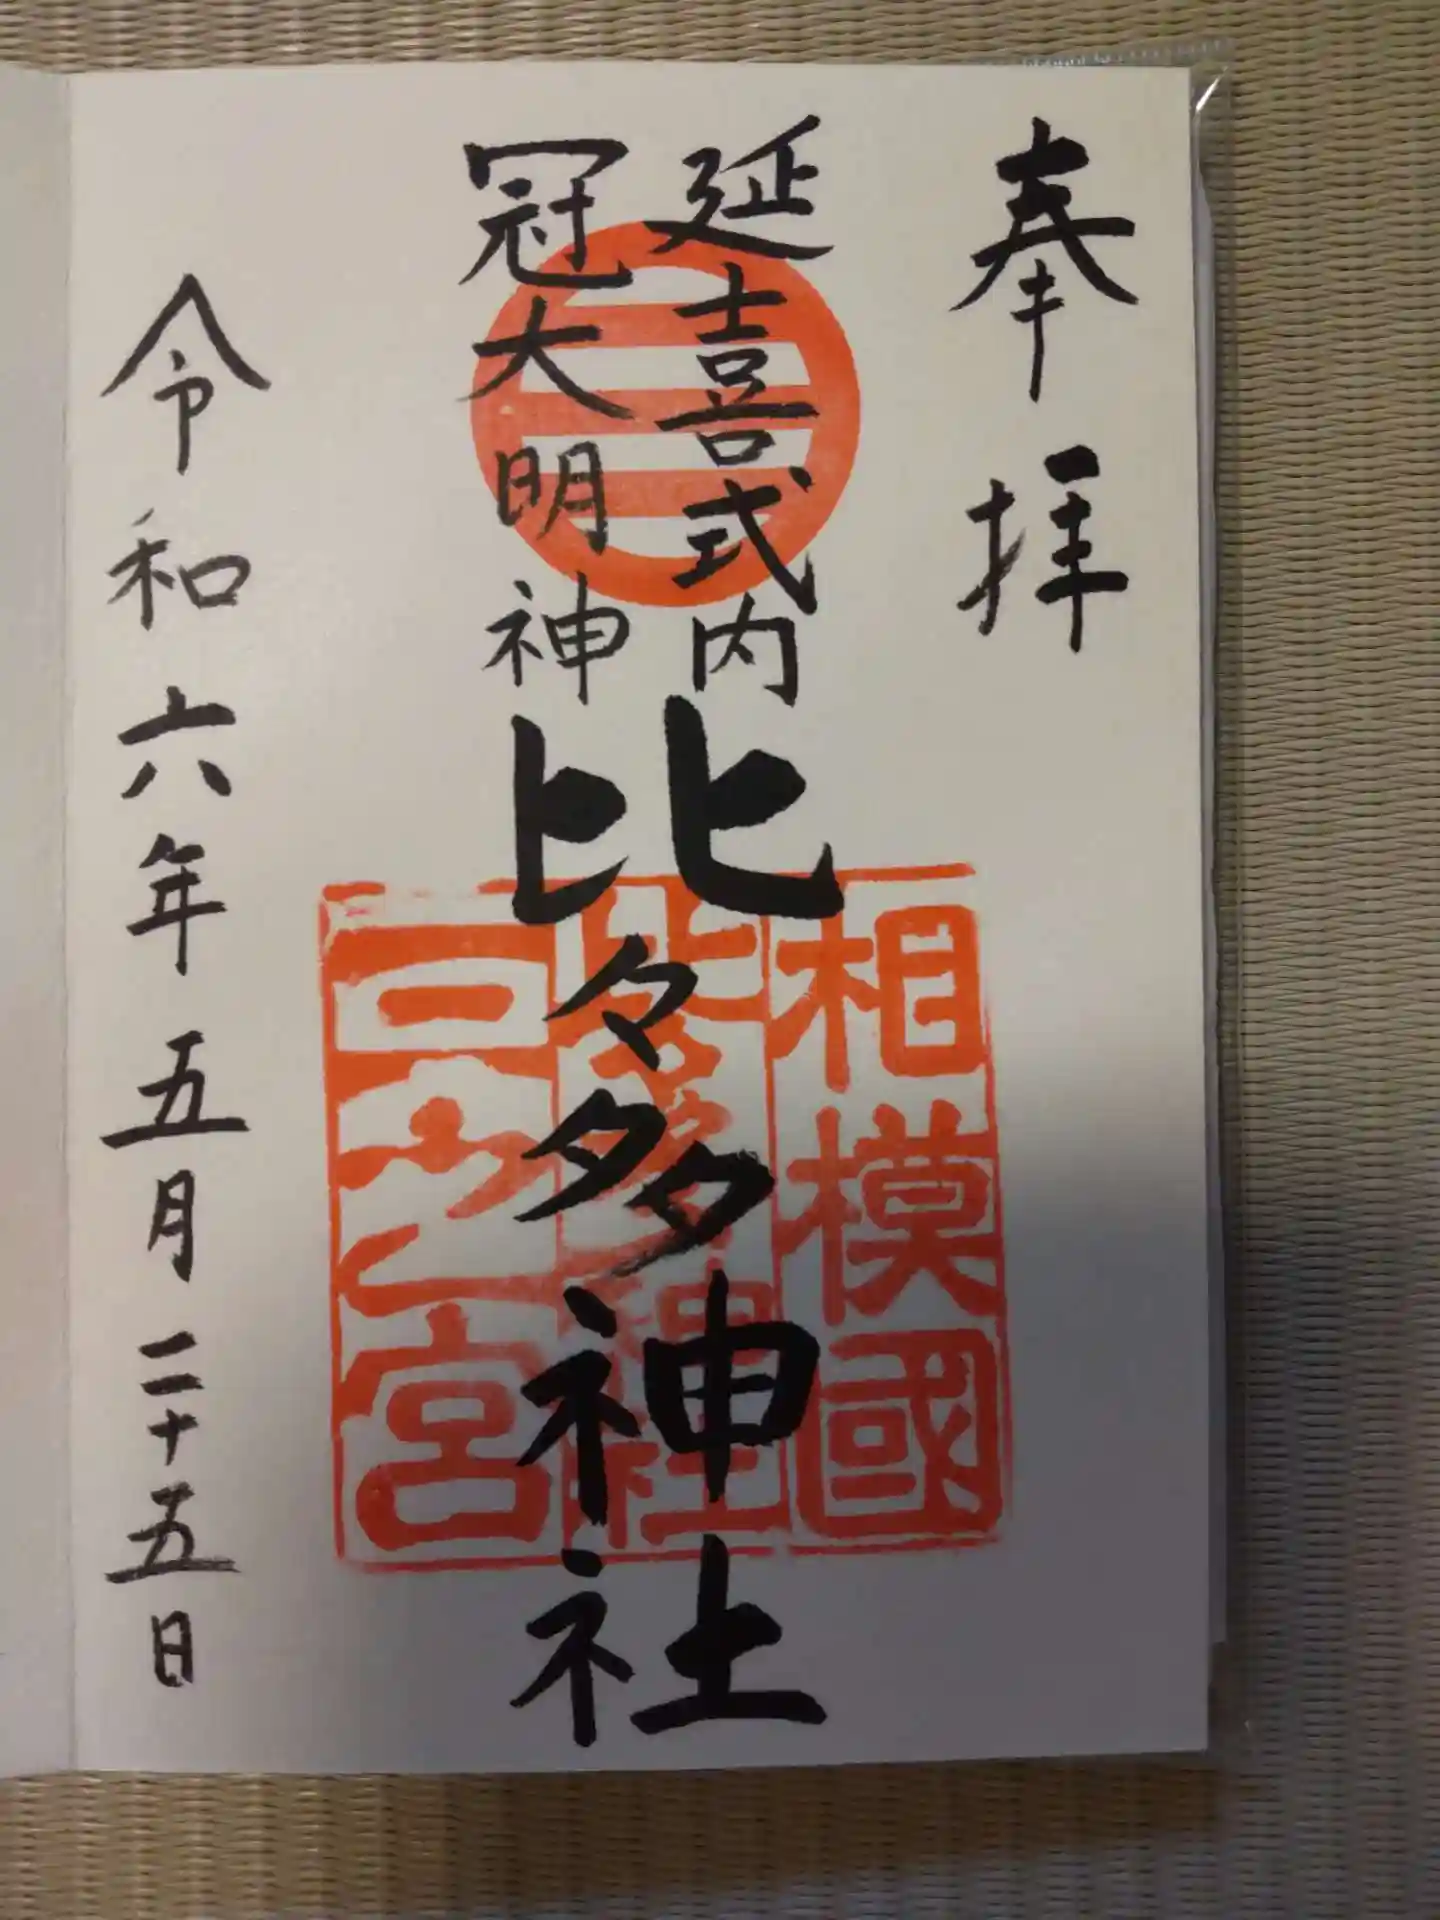 奉拝
延喜式内
冠大明神
比々多神社
相模國
比々多神社
三之宮
令和六年五月二十五日